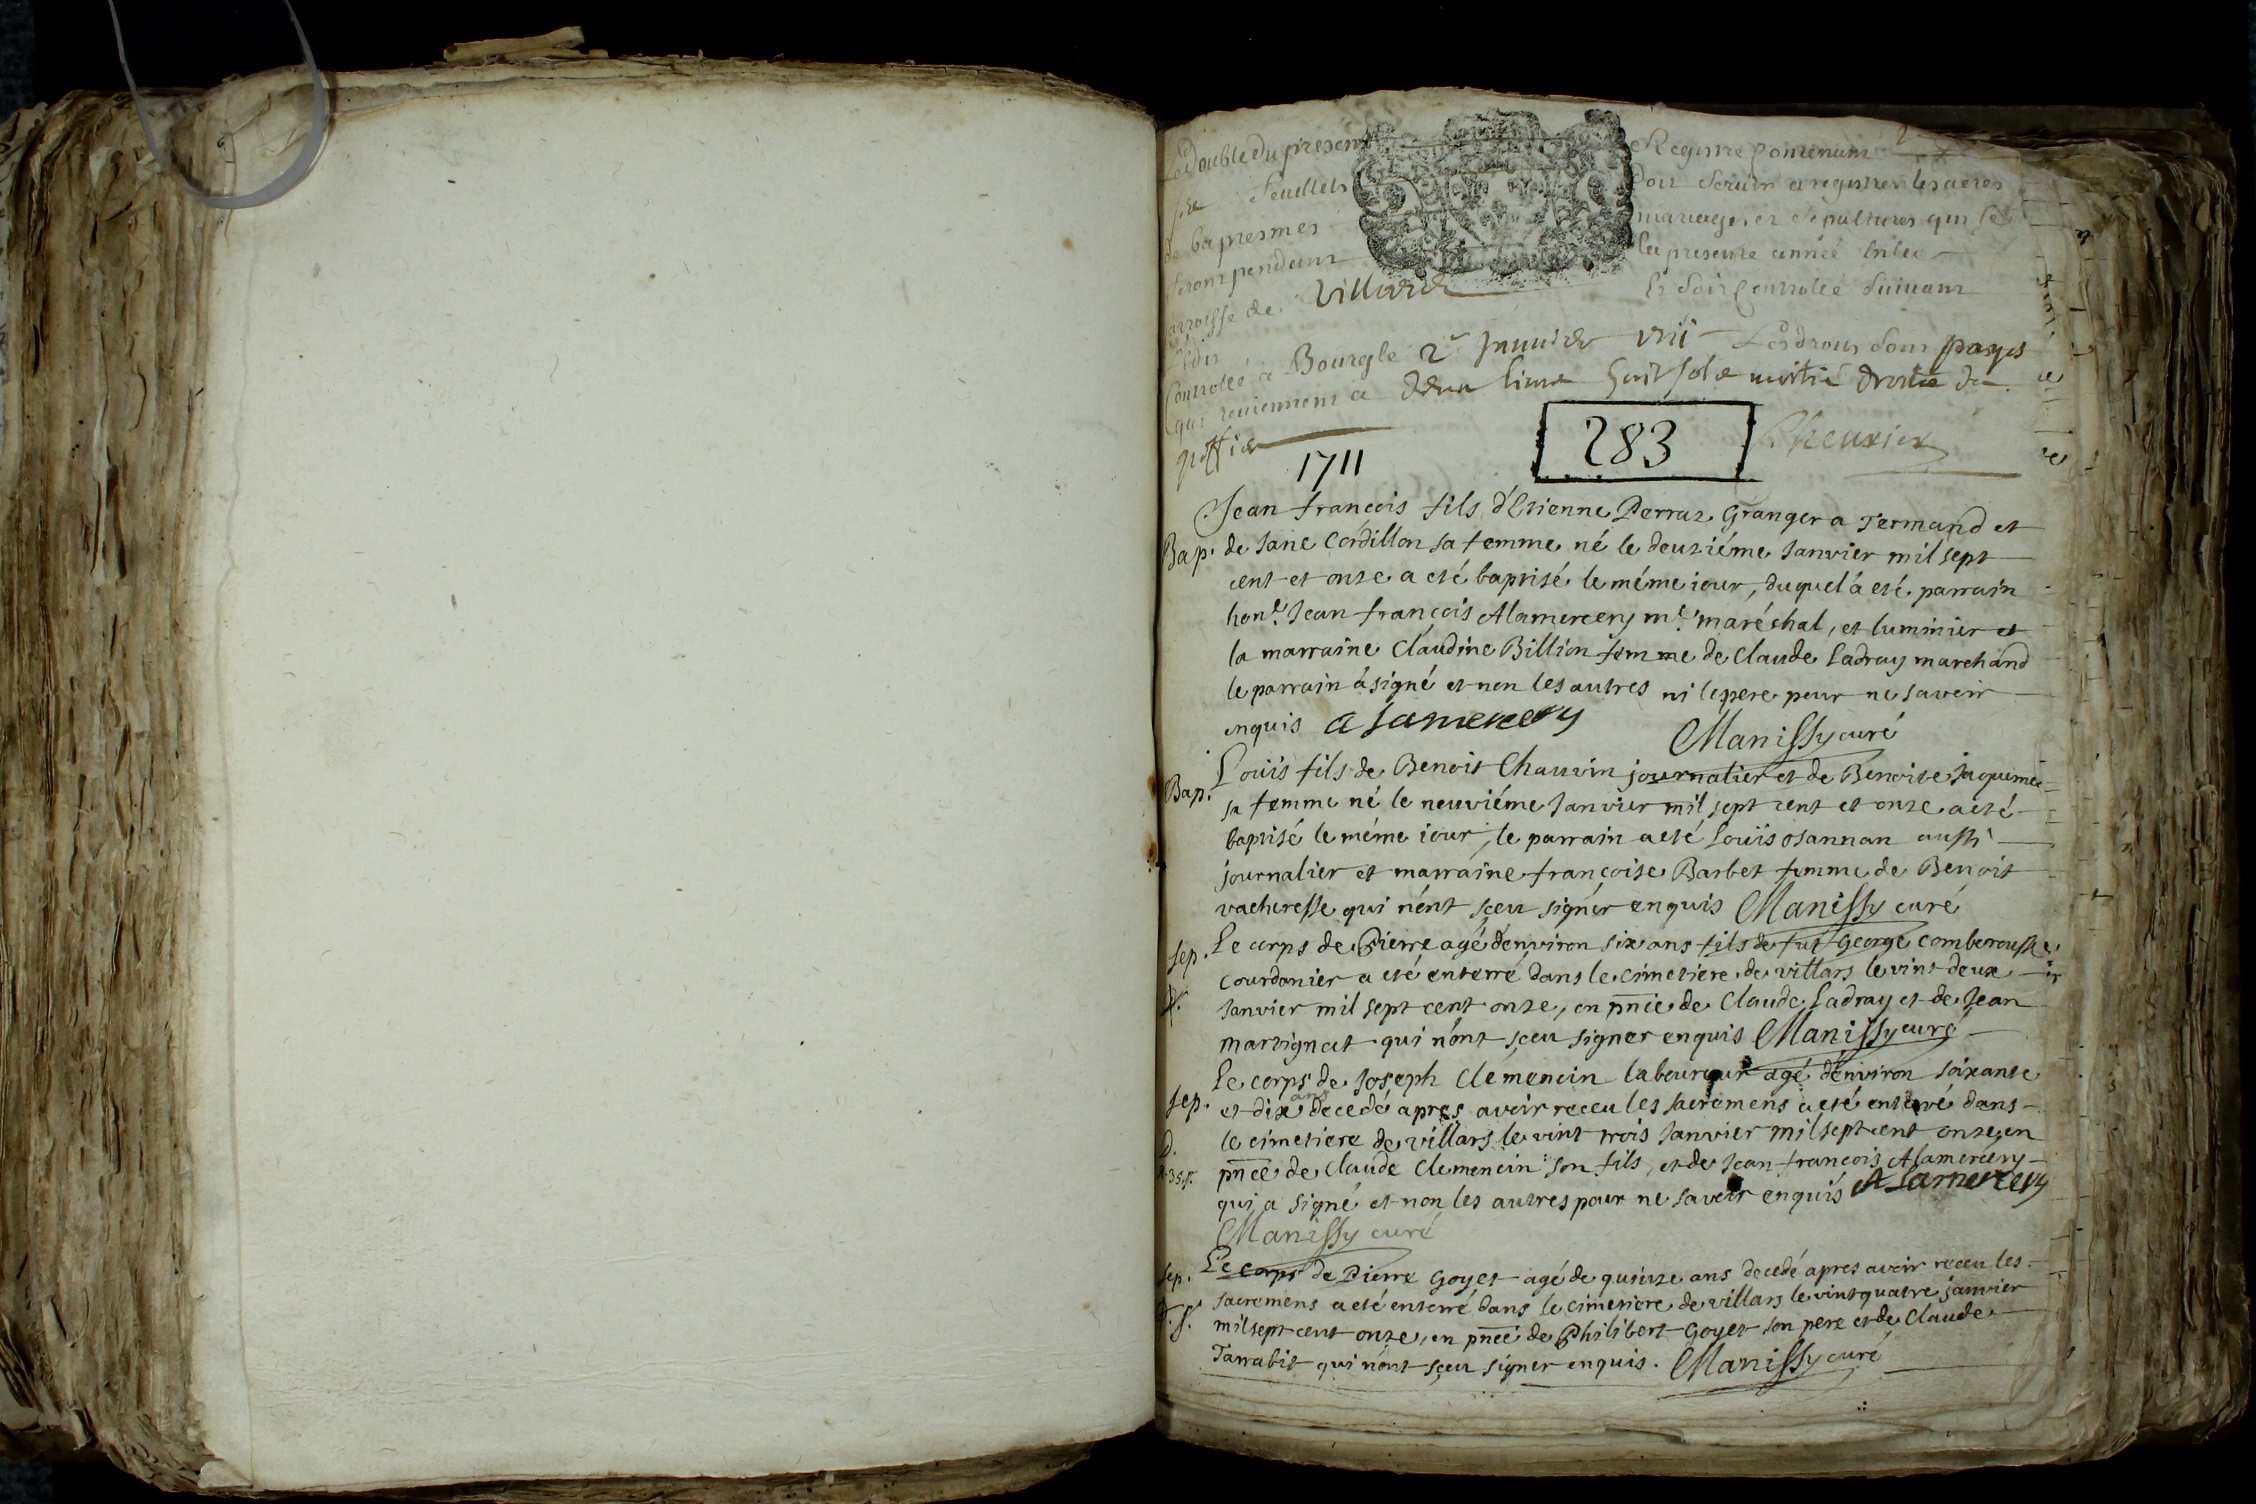 Le double du present Registre Contenant
feuillets doit servir a registrer les actes
de baptesmes mariages et sepultures qui se
feront pendant la presente année en la
parroisse de Villard Et soit Controllé suivant
l'edit
Controllé a Bourg le 2e Janvier Les droits sont payés
qui reviennent a deux livre huit sols moitié droits de
1711
283
Jean françois fils d'Etienne Perraz Granger a Termand et
Bap. de Jane Cordillon sa femme né le deuziéme Janvier mil sept
cent et onze a eté baptisé le méme iour, duquel à eté parrain
hon.e Jean françois Alamercery m.e maréchal, et luminier et
la marraine Claudine Billion femme de Claude Ladray marchand
le parrain à signé et non les autres ni le pere pour ne savoir
enquis Alamercery Manissy curé
Louis fils de Benoit Chauvin journalier et de Benoite
Bap. sa femme né le neuviéme Janvier mil sept cent et onze a eté
baptisé le méme iour, le parrain a eté Louis osannan aussi
journalier et marraine françoise Barbet femme de Benoit
vacheresse qui n'ont sçeu signér enquis Manissy curé
sep. Le corps de Pierre agé d'environ six ans fils de fut George comberousse
courdonier a eté enterré dans le cimetiere de villars le vint deux
Janvier mil sept cent onze, en pñce de Claude Ladray et de Jean
martignat qui n'ont sçeu signer enquis Manissy curé
Le corps de Joseph Clemencin laboureur agé d'environ soixante
sep. et dix ans decedé apres avoir receu les sacremens a eté enterré dans
D. le cimetiere de villars le vint trois Janvier mil sept cent onze, en
pñce de Claude Clemencin son fils, et de Jean françois Alamercery
qui a signé et non les autres pour ne savoir enquis Alamercery
Manissy curé
sep. Le corps de Pierre Goyet agé de quinze ans decedé apres avoir receu les
sacremens a eté enterré dans le cimetiere de villars le vint quatre janvier
mil sept cent onze, en pñce de Philibert Goyet son pere et de Claude
Tarrabit qui n'ont sçeu signer enquis. Manissy curé